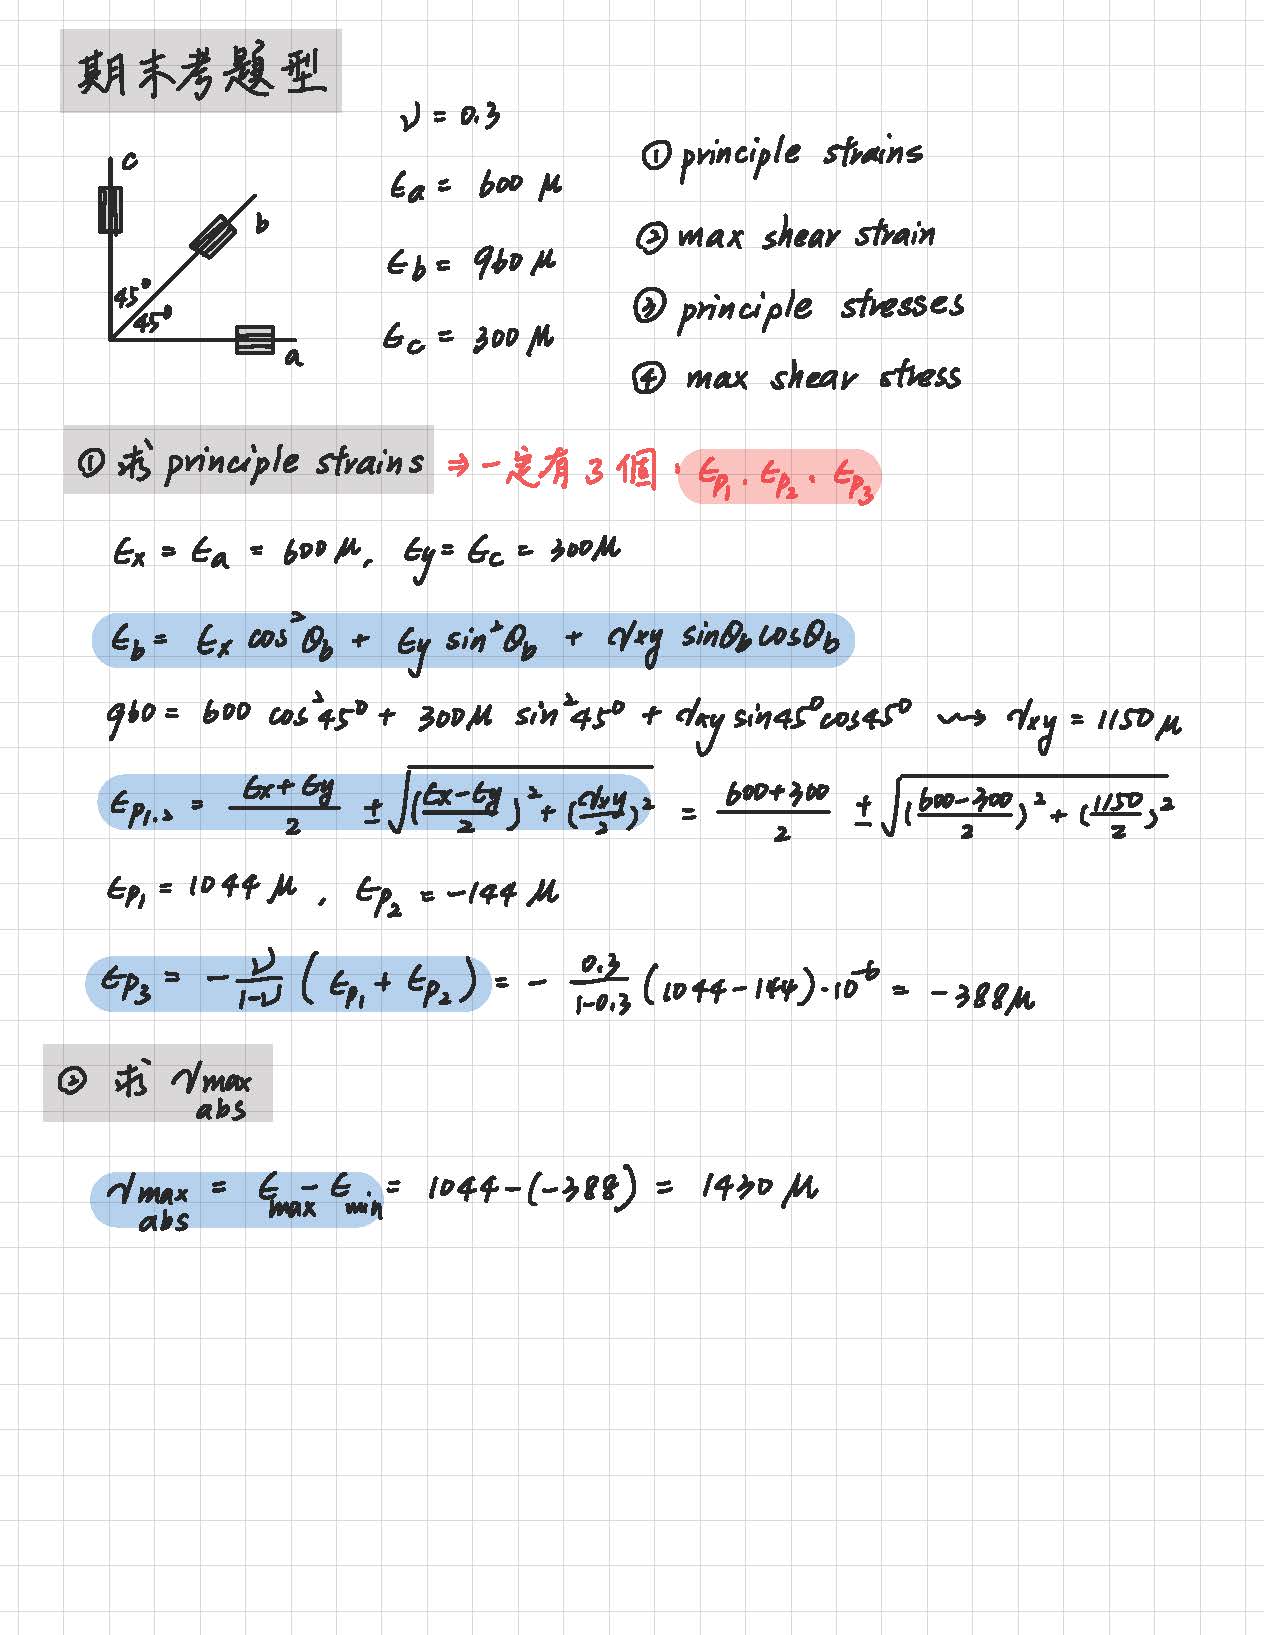 期末考題型
ν = 0.3
c
b
45°
45°
a
εa = 600 μ
εb = 960 μ
εc = 300 μ
① principle strains
② max shear strain
③ principle stresses
④ max shear stress
① 求 principle strains ⇒ 一定有 3 個. εp₁. εp₂. εp₃
εx = εa = 600 μ, εy = εc = 300 μ
εb = εx cos²θb + εy sin²θb + γxy sinθb cosθb
960 = 600 cos²45° + 300μ sin²45° + γxy sin45° cos45° ⇝ γxy = 1150 μ
εp₁.₂ = (εx + εy)/2 ± √((εx − εy)/2)² + (γxy/2)² = (600+300)/2 ± √((600−300)/2)² + (1150/2)²
εp₁ = 1044 μ, εp₂ = −144 μ
εp₃ = − ν/(1−ν) (εp₁ + εp₂) = − 0.3/(1−0.3) (1044 − 144)·10⁻⁶ = −388 μ
② 求 γmax abs
γmax abs = εmax − εmin = 1044 − (−388) = 1430 μ